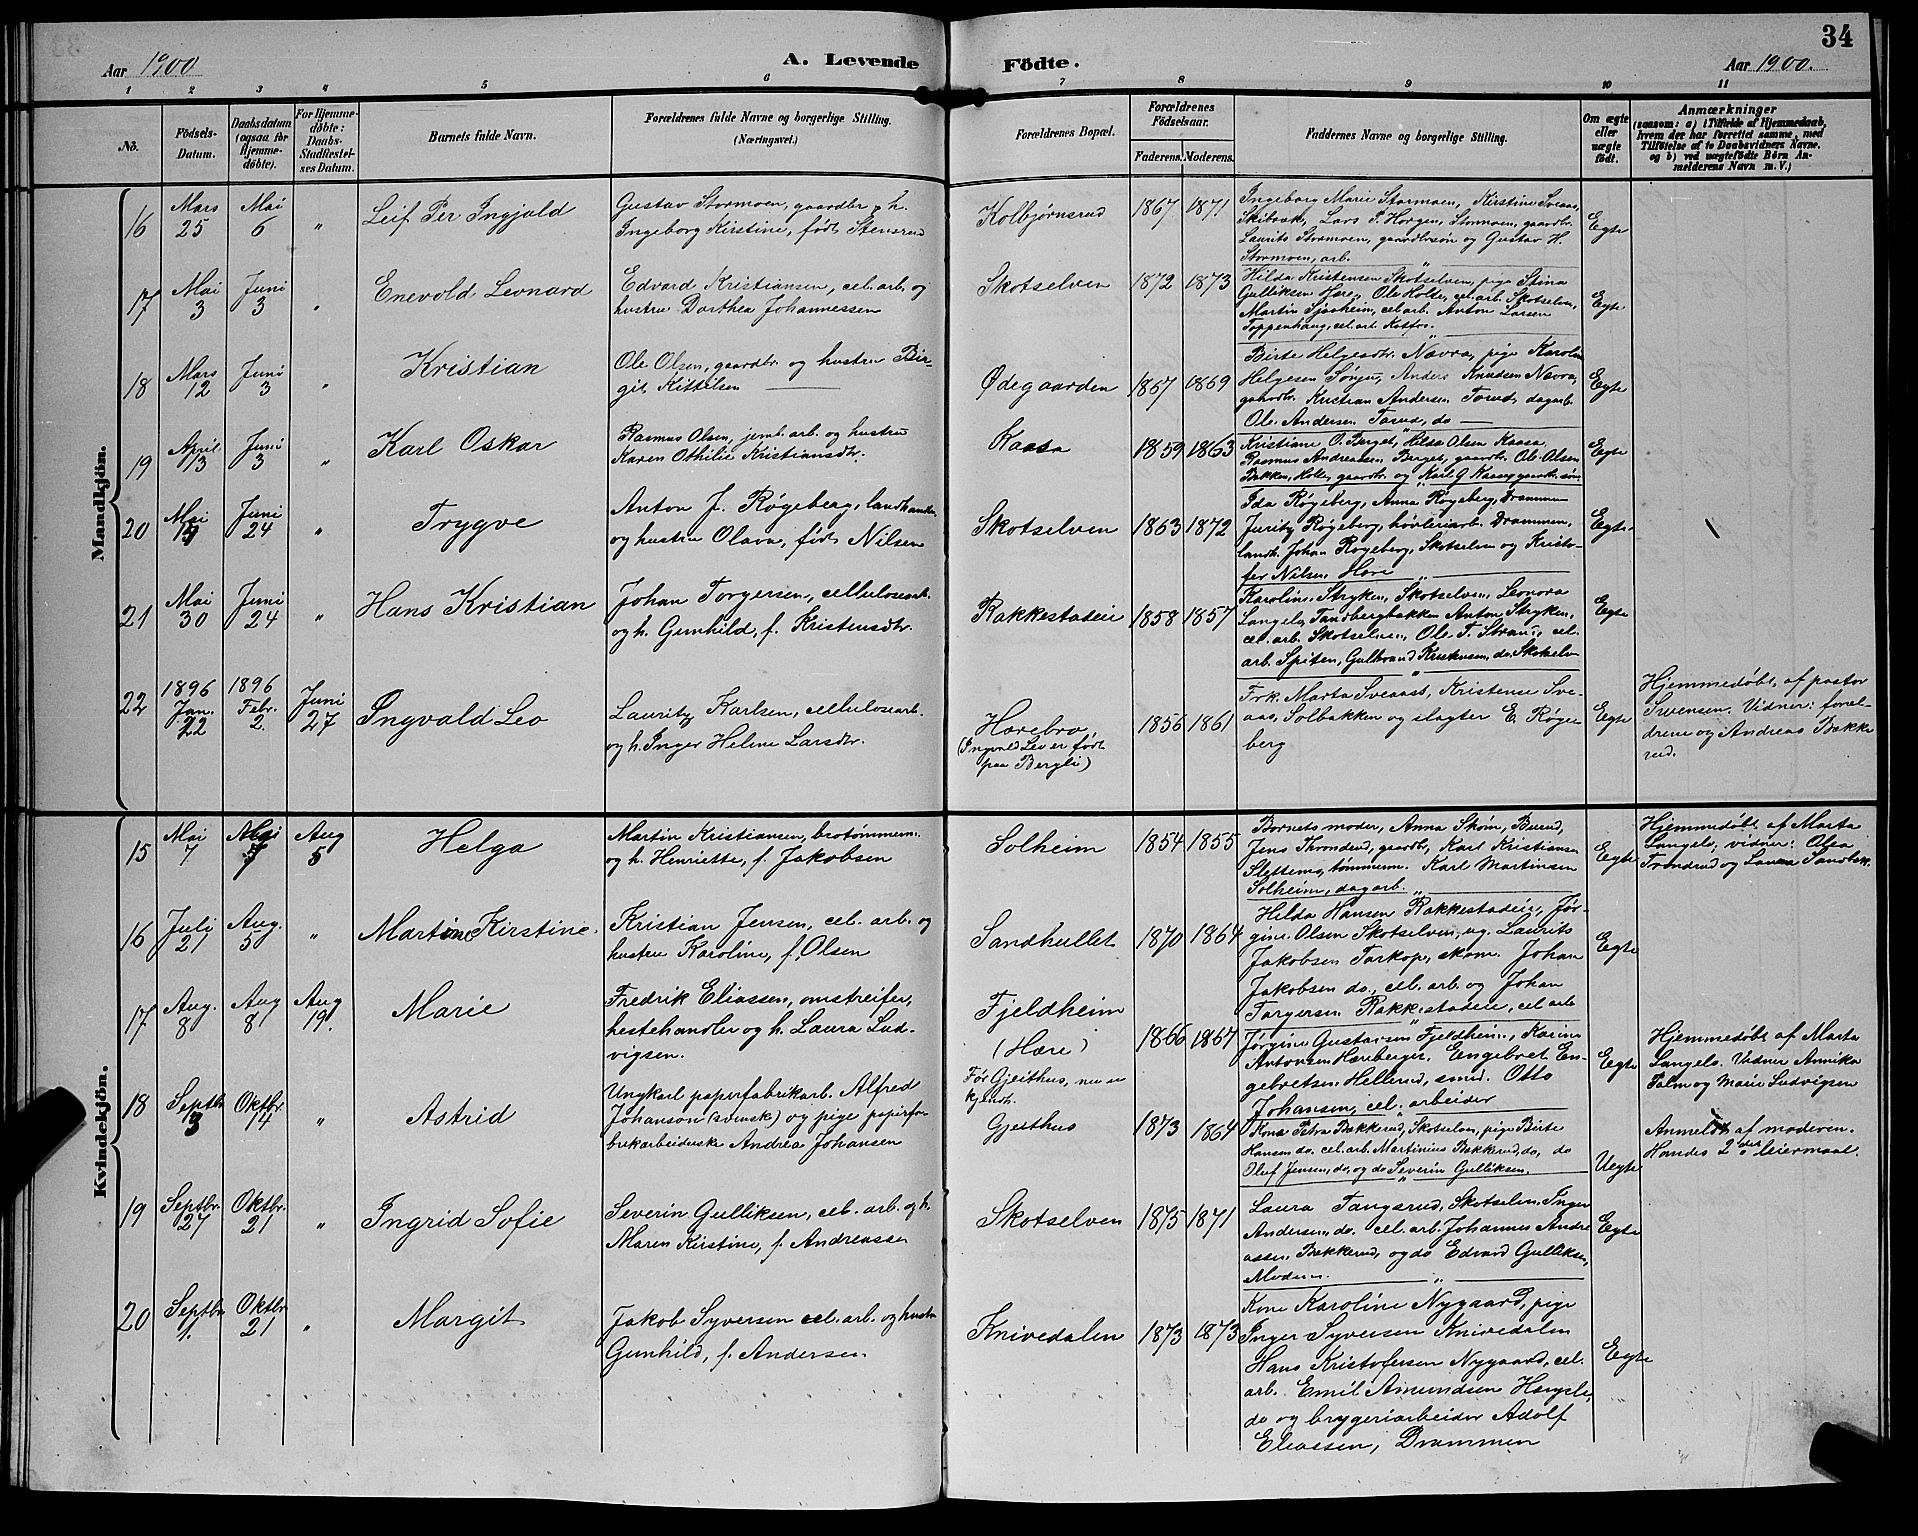 34
Aar 1900
A. Levende Födte.
Aar 1900.
1 2 3 4 5 6 7 8 9 10 11
No.
Födsels-Datum.
Daabsdatum (ogsaa for Hjemmedöbte).
For Hjemmedöbte: Daabs-Stadfæstelses Datum.
Barnets fulde Navn.
Forældrenes fulde Navne og borgerlige Stilling. (Næringsvei.)
Forældrenes Bopæl.
Forældrenes Födselsaar.
Faderens. Moderens.
Faddernes Navne og borgerlige Stilling.
Om ægte eller uægte födt.
Anmærkninger
(saasom: a) i Tilfælde af Hjemmedaab, hvem der har forrettet samme, med Tilföielse af to Daabsvidners Navne. og b) ved uægtefödte Börn Anmelderens Navn m. V.)
Mandkjön.
16 Mars 25 Mai 6 " Leif Per Ingjald
Gustav Stormoen, gaardbr. & h.
Ingeborg Kirstine, født Stensrud
Kolbjørnsrud 1867 1871
Ingeborg Marie Stormoen, Kirstine Sveaas,
Skibrak, Lars P. Horgen, Stormoen, gaardbr.
Laurits Stormoen, gaardbrsøn og Gustav H.
Stormoen, arb.
Egte
17 Mai 3 Juni 3 " Enevold Leonard
Edvard Kristiansen, cel. arb. og
hustru Dorthea Johannessen
Skotselven 1872 1873
Hilda Kristensen Skotselven, pige Stina
Gulliksen Hære, Ole Holte, cel. arb. Skotselven,
Martin Sjaaheim, cel. arb. Anton Larsen
Toppenhaug, cel. arb. Kosfos.
Egte
18 Mars 12 Juni 3 " Kristian
Ole Olsen, gaardbr. og hustru Bir-
git Kittilsen
Ødegaarden 1867 1869
Birte Helgesdtr. Nævra, pige Karoline
Helgesen, Anders Knudsen Nævra,
gaardbr. Kristian Andersen Torud, dagarb.
Ole Andersen Torud, do
Egte
19 April 13 Juni 3 " Karl Oskar
Rasmus Olsen, jernb. arb. og hustru
Karen Othilie Kristiansdtr.
Kaasa 1859 1863
Kristiane O. Berget, Hilda Olsen Kaasa,
Rasmus Andreassen Berget, gaardbr. Ole Olsen
Bakken, Holte, gaardbr. og Karl G Kaasa gaardbr. søn
Egte
20 Mai Juni 24 " Trygve
Anton J. Røgeberg, landhandler
og hustru Olava, født Nilsen
Skotselven 1863 1872
Ida Røgeberg, Anna Røgeberg, Drammen
Juritz Røgeberg, høvleriarb. Drammen,
landh. Johan Røgeberg, Skotselven og Kristo-
fer Nilsen, Hære
Egte
21 Mai 30 Juni 24 " Hans Kristian
Johan Torgersen, cellulosearb.
og h. Gunhild, f. Kristensdtr.
Rakkestadeie 1858 1857
Karoline Stryken, Skotselven, Leonora
Langelo, Sandbergbakken, Anton Stryken,
cel. arb. Skotselven, Ole T. Strand, cel.
arb. Spiten, Gulbrand Kristensen, do. Skotselv
Egte
22 1896 Jan. 22 1896 Febr. 2. Juni 27 Ingvald Leo
Lauritz Karlsen, cellulosearb.
og h. Inger Helene Larsdtr.
Hærebro
(Ingvald Leo er født
paa Bergli)
1856 1861
Frk. Marta Sveaas, Kristense Sve-
aas, Solbakken og slagter E. Røge-
berg
Egte
Hjemmedøbt af pastor
Svensen. Vidner: foræl-
drene og Andreas Bække-
rud.
Kvindekjön.
15 Mai 7 Mai Aug 5 Helga
Martin Kristiansen, brotømmerm.
og h. Henriette, f. Jakobsen
Solheim 1854 1855
Barnets moder, Anna Skøin, Burud,
Jens Throndrud, gaardb., Karl Kristiansen
Slettemo, tømmerm. Karl Martinsen
Solheim, dagarb.
Egte
Hjemmedøbt af Marta
Langelo, vidner: Olea
Trondrud og Laura Sandbæk.
16 Juli 21 Aug. 5 " Martine Kirstine.
Kristian Jensen, cel. arb. og
hustru Karoline, f. Olsen
Sandhullet 1870 1864
Hilda Hansen Rakkestadeie, Jør-
gine Olsen Skotselven, ug. Laurits
Jakobsen Tarkop, skom. Johan
Jakobsen do, cel. arb. og Johan
Torgersen Rakkestadeie, cel arb
Egte
17 Aug. 8 Aug 8 Aug 19. Marie
Fredrik Eliassen, omstreifer,
hestehandler og h. Laura Lud-
vigsen.
Fjeldheim
(Hære)
1866 1867
Jørgine Gustavsen Fjeldheim, Karine
Antonsen Hæreberget, Engebret En-
gebretsen Hellerud, smed. Otto
Johansen, cel. arbeider
Egte
Hjemmedøbt af Marta
Langelo. Vidner Annika
Palm og Marie Ludvigsen
18 Septbr 13 Oktbr 14 " Astrid
Ungkarl papirfabrikarb. Alfred
Johanson (svensk) og pige papirfa-
brikarbeiderske Andrea Johansen
Før Gjeithus, nu u-
kjendt.
Gjeithus 1873 1864
Kone Petra Bækkerud, Skotselven, pige Birte
Hansen do. cel. arb. Martinius Bækkerud, do, do
Oluf Jensen, do, og do Severin Gulliksen.
Uegte
Anmeldt af moderen.
Hendes 2det leiermaal.
19 Septbr. 27 Oktbr. 21 " Ingrid Sofie
Severin Gulliksen, cel. arb. og h.
Maren Kirstine, f. Andreassen
Skotselven 1875 1871
Laura Tangsrud, Skotselven, Inger
Andersen, do. cel. arb. Johannes Andre-
assen Bækkerud, og do Edvard Gulliksen,
Moderen.
Egte
20 Septbr 1. Oktbr 21 " Margit
Jakob Syversen cel. arb. og hustru
Gunhild, f. Andersen
Knivedalen 1873 1873
Kone Karoline Nygaard, pige
Inger Syversen Knivedalen
Hans Kristofersen Nygaard, cel.
arb. Emil Amundsen,
do og bryggeriarbeider Adolf
Eliassen, Drammen
Egte